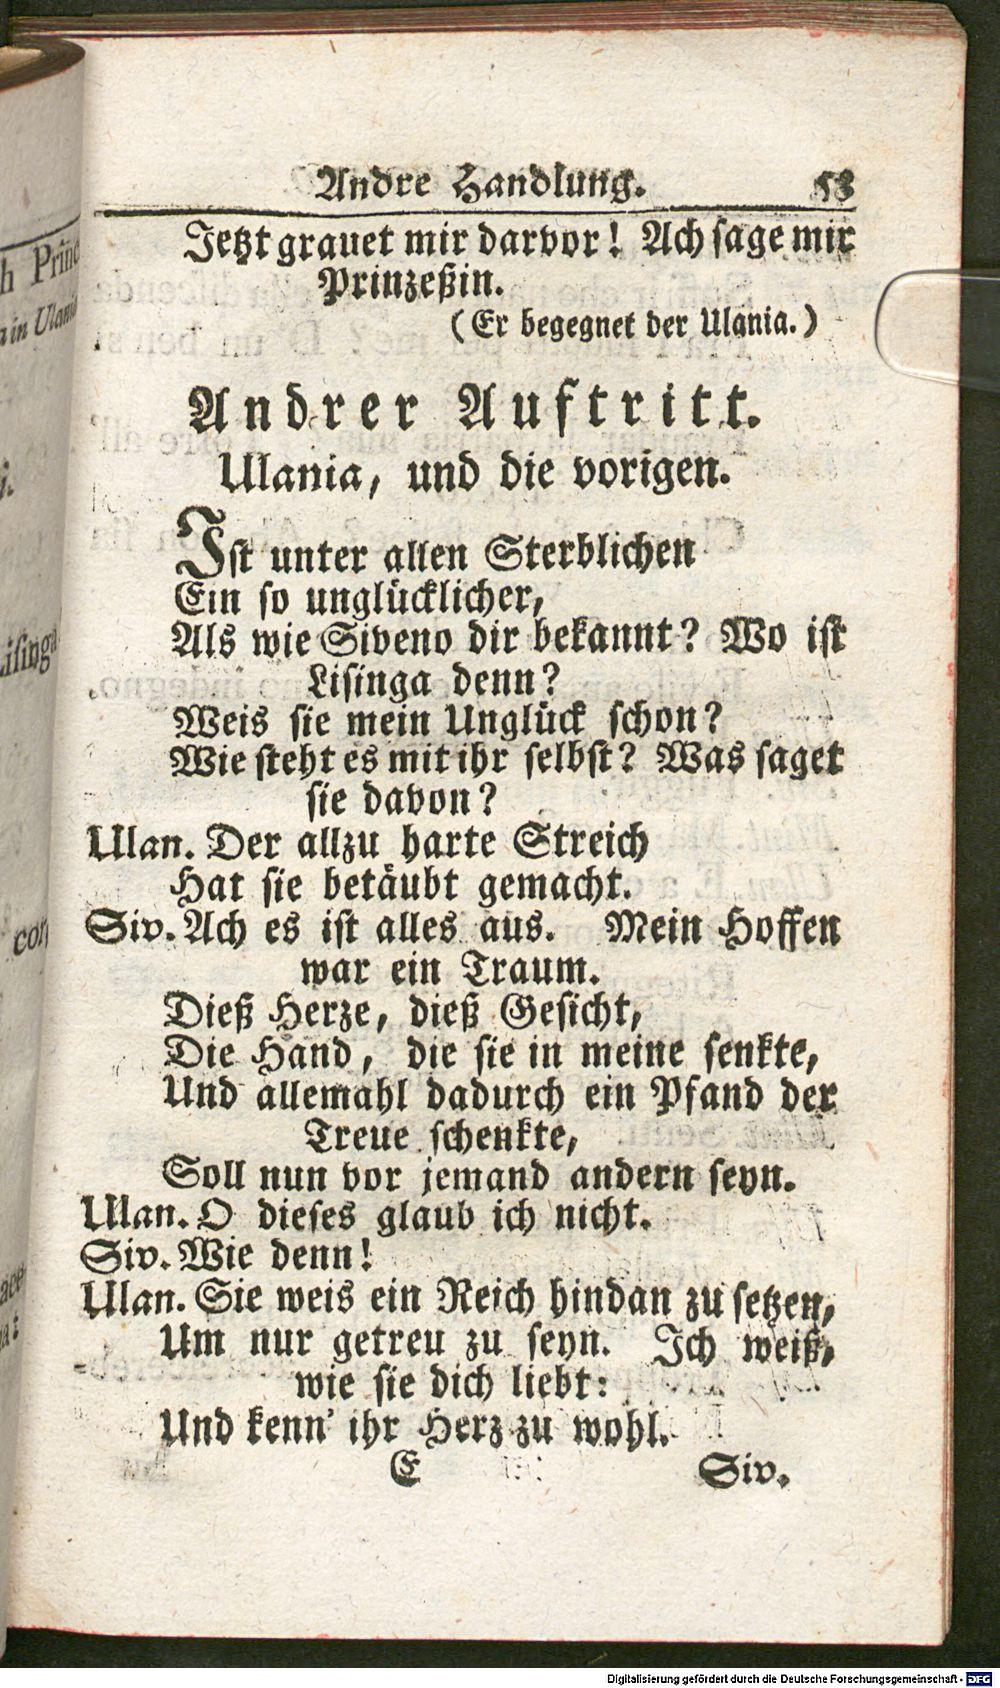 Andre Handlung. 53
Jetzt grauet mir darvor! Ach sage mir
Prinzeßin.
(Er begegnet der Ulania.)
Andrer Auftritt.
Ulania, und die vorigen.
Ist unter allen Sterblichen
Ein so unglücklicher,
Als wie Siveno dir bekannt? Wo ist
Lisinga denn?
Weis sie mein Unglück schon?
Wie steht es mit ihr selbst? Was saget
sie davon?
Ulan. Der allzu harte Streich
Hat sie betäubt gemacht.
Siv. Ach es ist alles aus. Mein Hoffen
war ein Traum.
Dieß Herze, dieß Gesicht,
Die Hand, die sie in meine senkte,
Und allemahl dadurch ein Pfand der
Treue schenkte,
Soll nun vor jemand andern seyn.
Ulan. O dieses glaub ich nicht.
Siv. Wie denn!
Ulan. Sie weis ein Reich hindan zu setzen,
Um nur getreu zu seyn. Ich weiß,
wie sie dich liebt:
Und kenn' ihr Herz zu wohl.
E Siv.
Digitalisierung gefördert durch die Deutsche Forschungsgemeinschaft - DFG